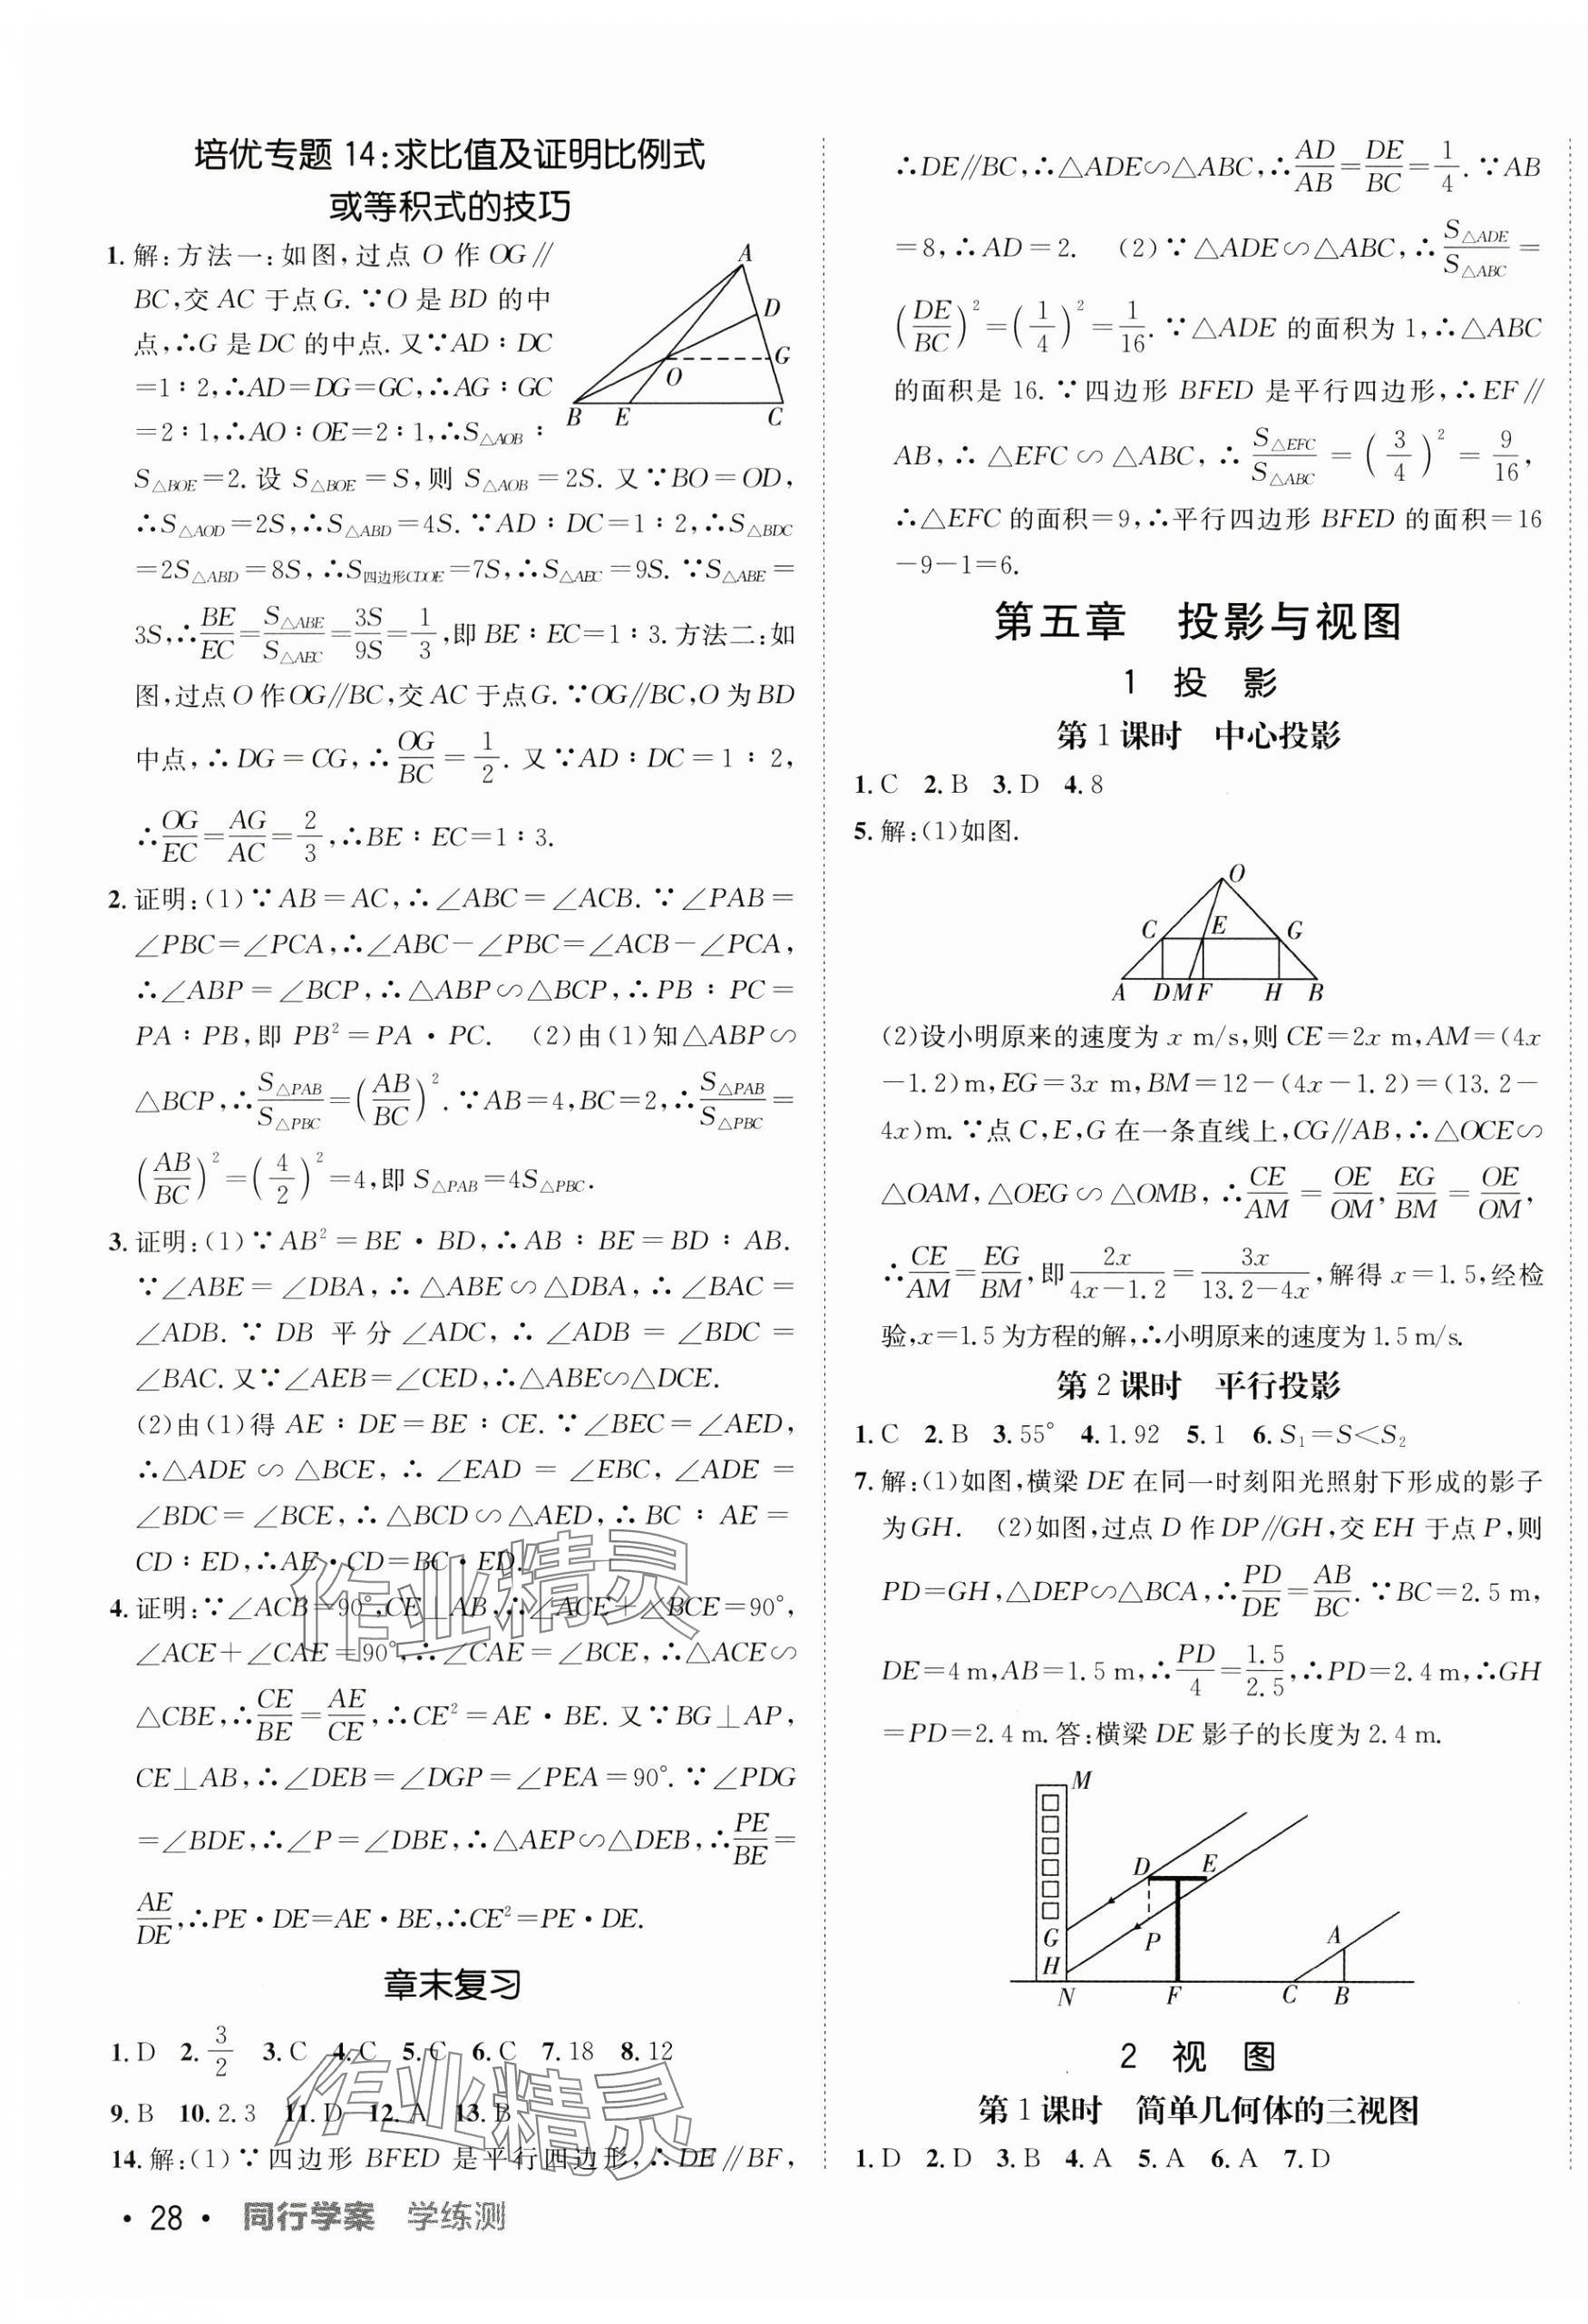 培优专题 14:求比值及证明比例式
或等积式的技巧
1. 解:方法一:如图,过点 O 作 OG∥
BC,交 AC 于点 G. ∵O 是 BD 的中
点,∴G 是 DC 的中点. 又∵AD∶DC
=1∶2,∴AD=DG=GC,∴AG∶GC
=2∶1,∴AO∶OE=2∶1,∴S△AOB∶
S△BOE=2. 设 S△BOE=S,则 S△AOB=2S. 又∵BO=OD,
∴S△AOD=2S,∴S△ABD=4S. ∵AD∶DC=1∶2,∴S△BDC
=2S△ABD=8S,∴S四边形CDOE=7S,∴S△AEC=9S. ∵S△ABE=
3S,∴BE/EC=S△ABE/S△AEC=3S/9S=1/3,即 BE∶EC=1∶3. 方法二:如
图,过点 O 作 OG∥BC,交 AC 于点 G. ∵OG∥BC,O 为 BD
中点,∴DG=CG,∴OG/BC=1/2. 又∵AD∶DC=1∶2,
∴OG/EC=AG/AC=2/3,∴BE∶EC=1∶3.
A
D
G
O
B E C
2. 证明:(1)∵AB=AC,∴∠ABC=∠ACB. ∵∠PAB=
∠PBC=∠PCA,∴∠ABC-∠PBC=∠ACB-∠PCA,
∴∠ABP=∠BCP,∴△ABP∽△BCP,∴PB∶PC=
PA∶PB,即 PB²=PA·PC. (2)由(1)知△ABP∽
△BCP,∴S△PAB/S△PBC=(AB/BC)². ∵AB=4,BC=2,∴S△PAB/S△PBC=
(AB/BC)²=(4/2)²=4,即 S△PAB=4S△PBC.
3. 证明:(1)∵AB²=BE·BD,∴AB∶BE=BD∶AB.
∵∠ABE=∠DBA,∴△ABE∽△DBA,∴∠BAC=
∠ADB. ∵DB 平分∠ADC,∴∠ADB=∠BDC=
∠BAC. 又∵∠AEB=∠CED,∴△ABE∽△DCE.
(2)由(1)得 AE∶DE=BE∶CE. ∵∠BEC=∠AED,
∴△ADE∽△BCE,∴∠EAD=∠EBC,∠ADE=
∠BDC=∠BCE,∴△BCD∽△AED,∴BC∶AE=
CD∶ED,∴AE·CD=BC·ED.
4. 证明:∵∠ACB=90°,CE⊥AB,∴∠ACE+∠BCE=90°,
∠ACE+∠CAE=90°,∴∠CAE=∠BCE,∴△ACE∽
△CBE,∴CE/BE=AE/CE,∴CE²=AE·BE. 又∵BG⊥AP,
CE⊥AB,∴∠DEB=∠DGP=∠PEA=90°. ∵∠PDG
=∠BDE,∴∠P=∠DBE,∴△AEP∽△DEB,∴PE/BE=
AE/DE,∴PE·DE=AE·BE,∴CE²=PE·DE.
章末复习
1. D 2. 3/2 3. C 4. C 5. C 6. C 7. 18 8. 12
9. B 10. 2.3 11. D 12. A 13. B
14. 解:(1)∵四边形 BFED 是平行四边形,∴DE∥BF,
作业精灵
作业精灵
· 28 · 同行学案 学练测
∴DE∥BC,∴△ADE∽△ABC,∴AD/AB=DE/BC=1/4. ∵AB
=8,∴AD=2. (2)∵△ADE∽△ABC,∴S△ADE/S△ABC=
(DE/BC)²=(1/4)²=1/16. ∵△ADE 的面积为 1,∴△ABC
的面积是 16. ∵四边形 BFED 是平行四边形,∴EF∥
AB,∴△EFC∽△ABC,∴S△EFC/S△ABC=(3/4)²=9/16,
∴△EFC 的面积=9,∴平行四边形 BFED 的面积=16
-9-1=6.
第五章 投影与视图
1 投 影
第 1 课时 中心投影
1. C 2. B 3. D 4. 8
5. 解:(1)如图.
O
C E G
A D M F H B
(2)设小明原来的速度为 x m/s,则 CE=2x m,AM=(4x
-1.2)m,EG=3x m,BM=12-(4x-1.2)=(13.2-
4x)m. ∵点 C,E,G 在一条直线上,CG∥AB,∴△OCE∽
△OAM,△OEG∽△OMB,∴CE/AM=OE/OM,EG/BM=OE/OM,
∴CE/AM=EG/BM,即2x/(4x-1.2)=3x/(13.2-4x),解得 x=1.5,经检
验,x=1.5 为方程的解,∴小明原来的速度为 1.5 m/s.
第 2 课时 平行投影
1. C 2. B 3. 55° 4. 1.92 5. 1 6. S₁=S<S₂
7. 解:(1)如图,横梁 DE 在同一时刻阳光照射下形成的影子
为 GH. (2)如图,过点 D 作 DP∥GH,交 EH 于点 P,则
PD=GH,△DEP∽△BCA,∴PD/DE=AB/BC. ∵BC=2.5 m,
DE=4 m,AB=1.5 m,∴PD/4=1.5/2.5,∴PD=2.4 m,∴GH
=PD=2.4 m. 答:横梁 DE 影子的长度为 2.4 m.
M
D E
G P A
H
N F C B
2 视 图
第 1 课时 简单几何体的三视图
1. D 2. D 3. B 4. A 5. A 6. A 7. D